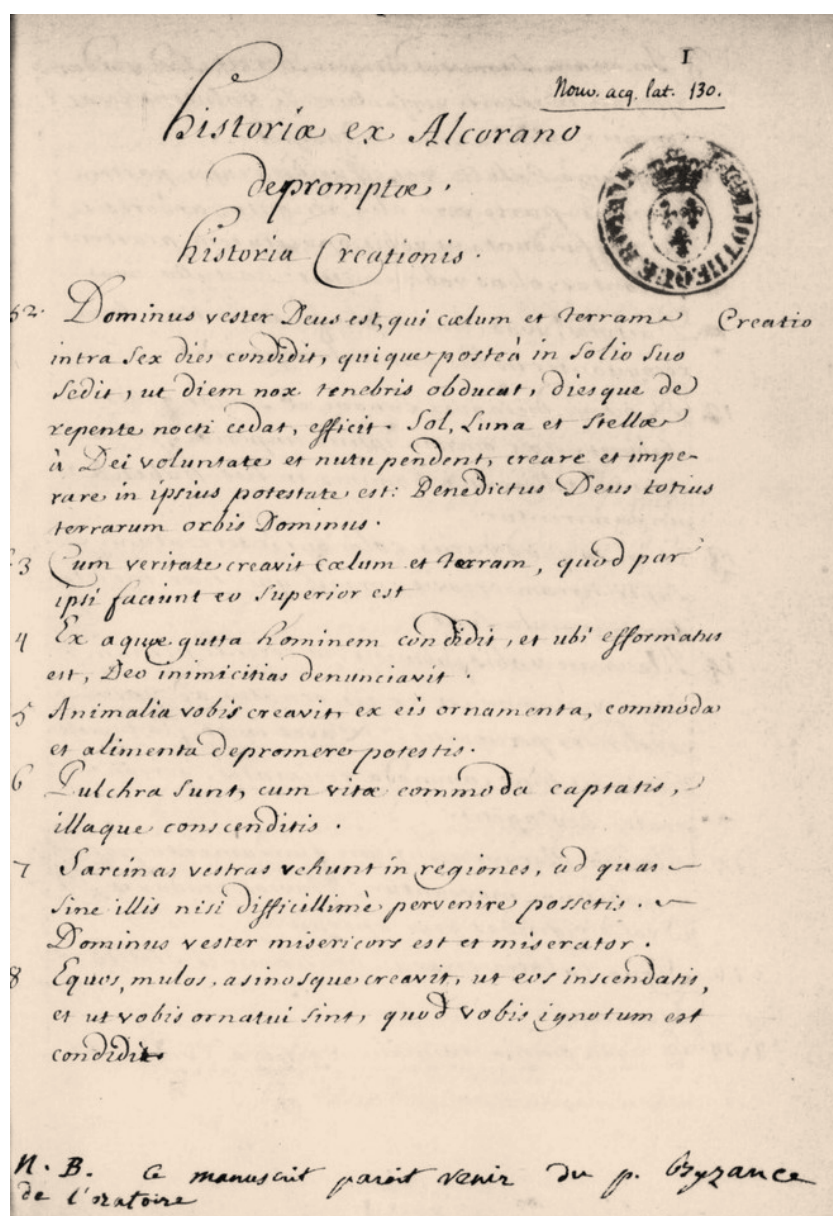 1
Nouv. acq. lat. 130.
historiæ ex Alcorano
depromptæ.
historia Creationis.
BIBLIOTHEQUE ROYALE
52. Dominus vester Deus est, qui cælum et terram Creatio
intra sex dies condidit, quique posteà in solio suo
sedit, ut diem nox tenebris obducat, diesque de
repente nocti cedat, efficit. Sol, Luna et stellæ
à Dei voluntate et nutu pendent, creare et impe-
rare in ipsius potestate est: Benedictus Deus totius
terrarum orbis Dominus.
3 Cum veritate creavit cælum et terram, quod par
ipsi faciunt eo superior est
4 Ex aquæ gutta hominem condidit, et ubi efformatus
est, Deo inimicitias denunciavit.
5 Animalia vobis creavit, ex eis ornamenta, commoda
et alimenta depromere potestis.
6 Pulchra sunt, cum vitæ commoda captatis,
illaque conscenditis.
7 Sarcinas vestras vehunt in regiones, ad quas
sine illis nisi difficillimè pervenire possetis.
Dominus vester misericors est et miserator.
8 Equos, mulos, asinosque creavit, ut eos inscendatis,
et ut vobis ornatui sint, quod vobis ignotum est
condidit.
N. B. Ce manuscrit paroit venir du p. Byzance
de l'oratoire